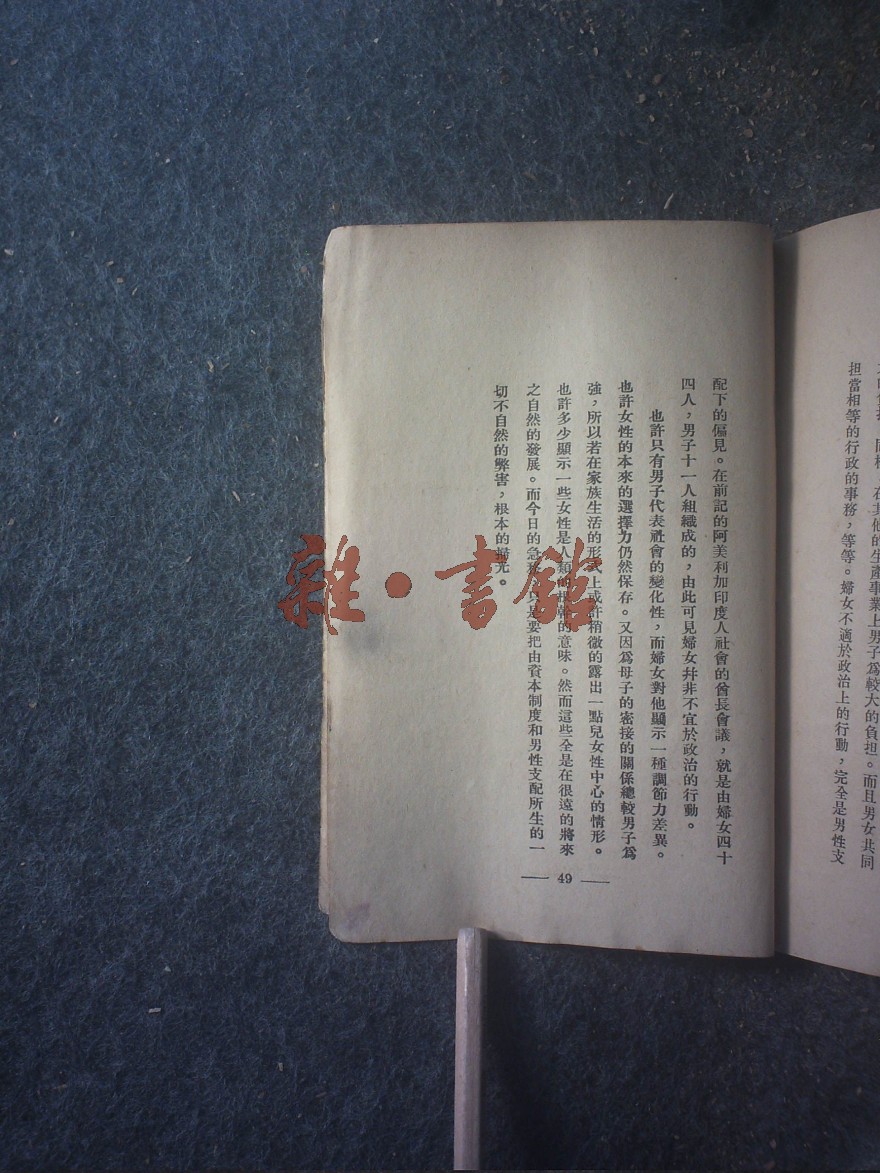 担當相等的行政的事務，等等。婦女不適於政治上的行動，完全是男性支
配下的偏見。在前記的阿美利加印度人社會的酋長會議，就是由婦女四十
四人，男子十一人組織成的，由此可見婦女幷非不宜於政治的行動。
也許只有男子代表社會的變化性，而婦女對他顯示一種調節力差異。
也許女性的本來的選擇力仍然保存。又因爲母子的密接的關係總較男子爲
強，所以若在家族生活的形式上或許稍微的露出一點兒女性中心的情形。
也許多少顯示一些女性是人類的根幹的意味。然而這些全是在很遠的將來
之自然的發展。而今日的急務，只是要把由資本制度和男性支配所生的一
切不自然的弊害，根本的掃光。
49
雜·書館